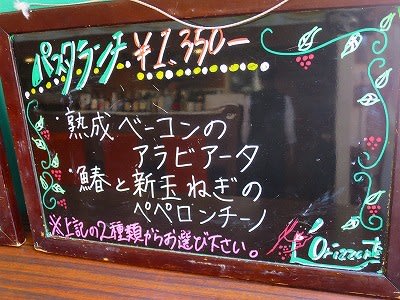 パスタランチ ¥1,350-
・熟成ベーコンの
アラビアータ
・鰆と新玉ねぎの
ペペロンチーノ
※上記の2種類からお選び下さい。